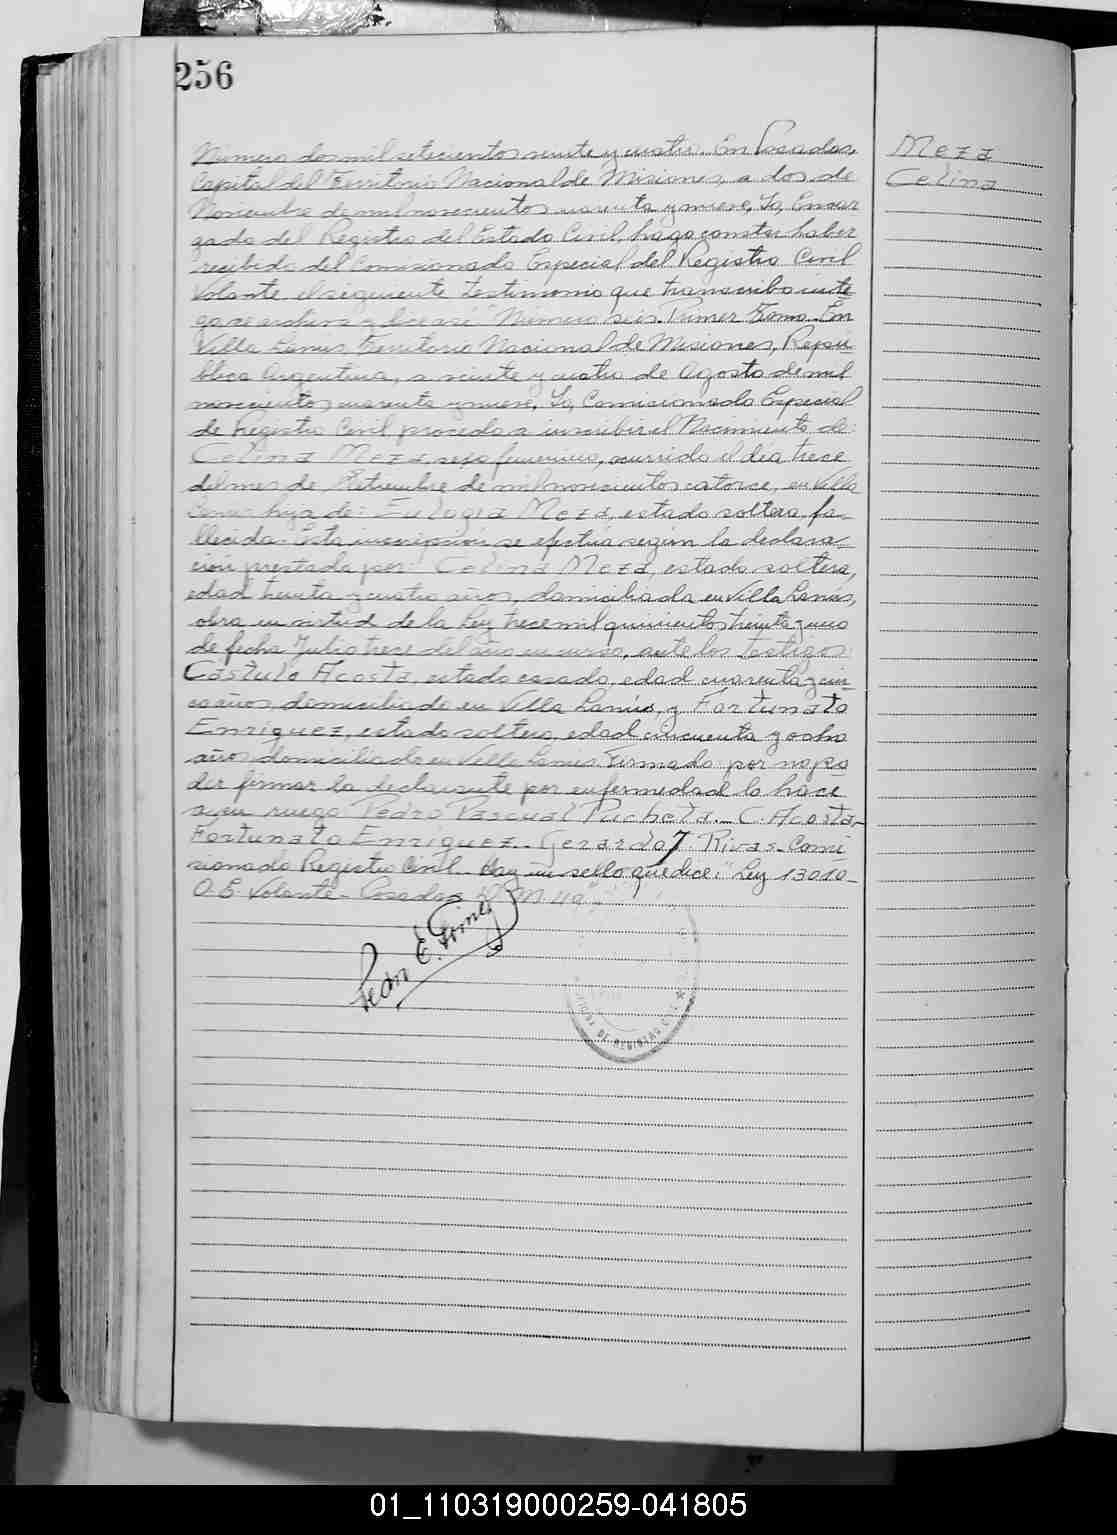 256
Meza
Celina
Numero dos mil setecientos veinte y cuatro. En Posadas,
Capital del Territorio Nacional de Misiones, a dos de
Noviembre de mil novecientos cuarenta y nueve, Yo, Encar
gado del Registro del Estado Civil, hago constar haber
recibido del Comisionado Especial del Registro Civil
Volante el siguiente testimonio que transcribo inte
Numero seis. Primer Tomo. En
Villa Lanus, Territorio Nacional de Misiones, Repú
blica Argentina, a veinte y cuatro de Agosto de mil
novecientos cuarenta y nueve, Yo, Comisionado Especial
de Registro Civil procedo a inscribir el Nacimiento de:
Celina Meza, sexo femenino, ocurrido el día trece
del mes de Setiembre de mil novecientos catorce, en Villa
Lanus hija de: Eulogia Meza, estado soltera, fa-
llecida. Esta inscripción se efectua segun la declara-
ción prestada por: Celina Meza, estado soltera,
edad treinta y cuatro años, domiciliada en Villa Lanús,
obra en virtud de la Ley trece mil quinientos treinta y uno
de fecha Julio trece del año en curso, ante los testigos:
Castulo Acosta, estado casado, edad cuarenta y cin-
co años, domiciliado en Villa Lanús, y Fortunato
Enriquez, estado soltero, edad cincuenta y ocho
años domiciliado en Villa Lanus. Firmado por no po
der firmar la declarante por enfermedad lo hace
a su ruego Pedro Pascual Pucheta.- C. Acosta-
Fortunato Enriquez.- Gerardo J. Rivas- Comi
sionado Registro Civil.- Hay un sello que dice: "Ley 13010-
O.E. Volante- Posadas
Pedro E. Gimez
DE REGISTRO CIVIL
01_110319000259-041805